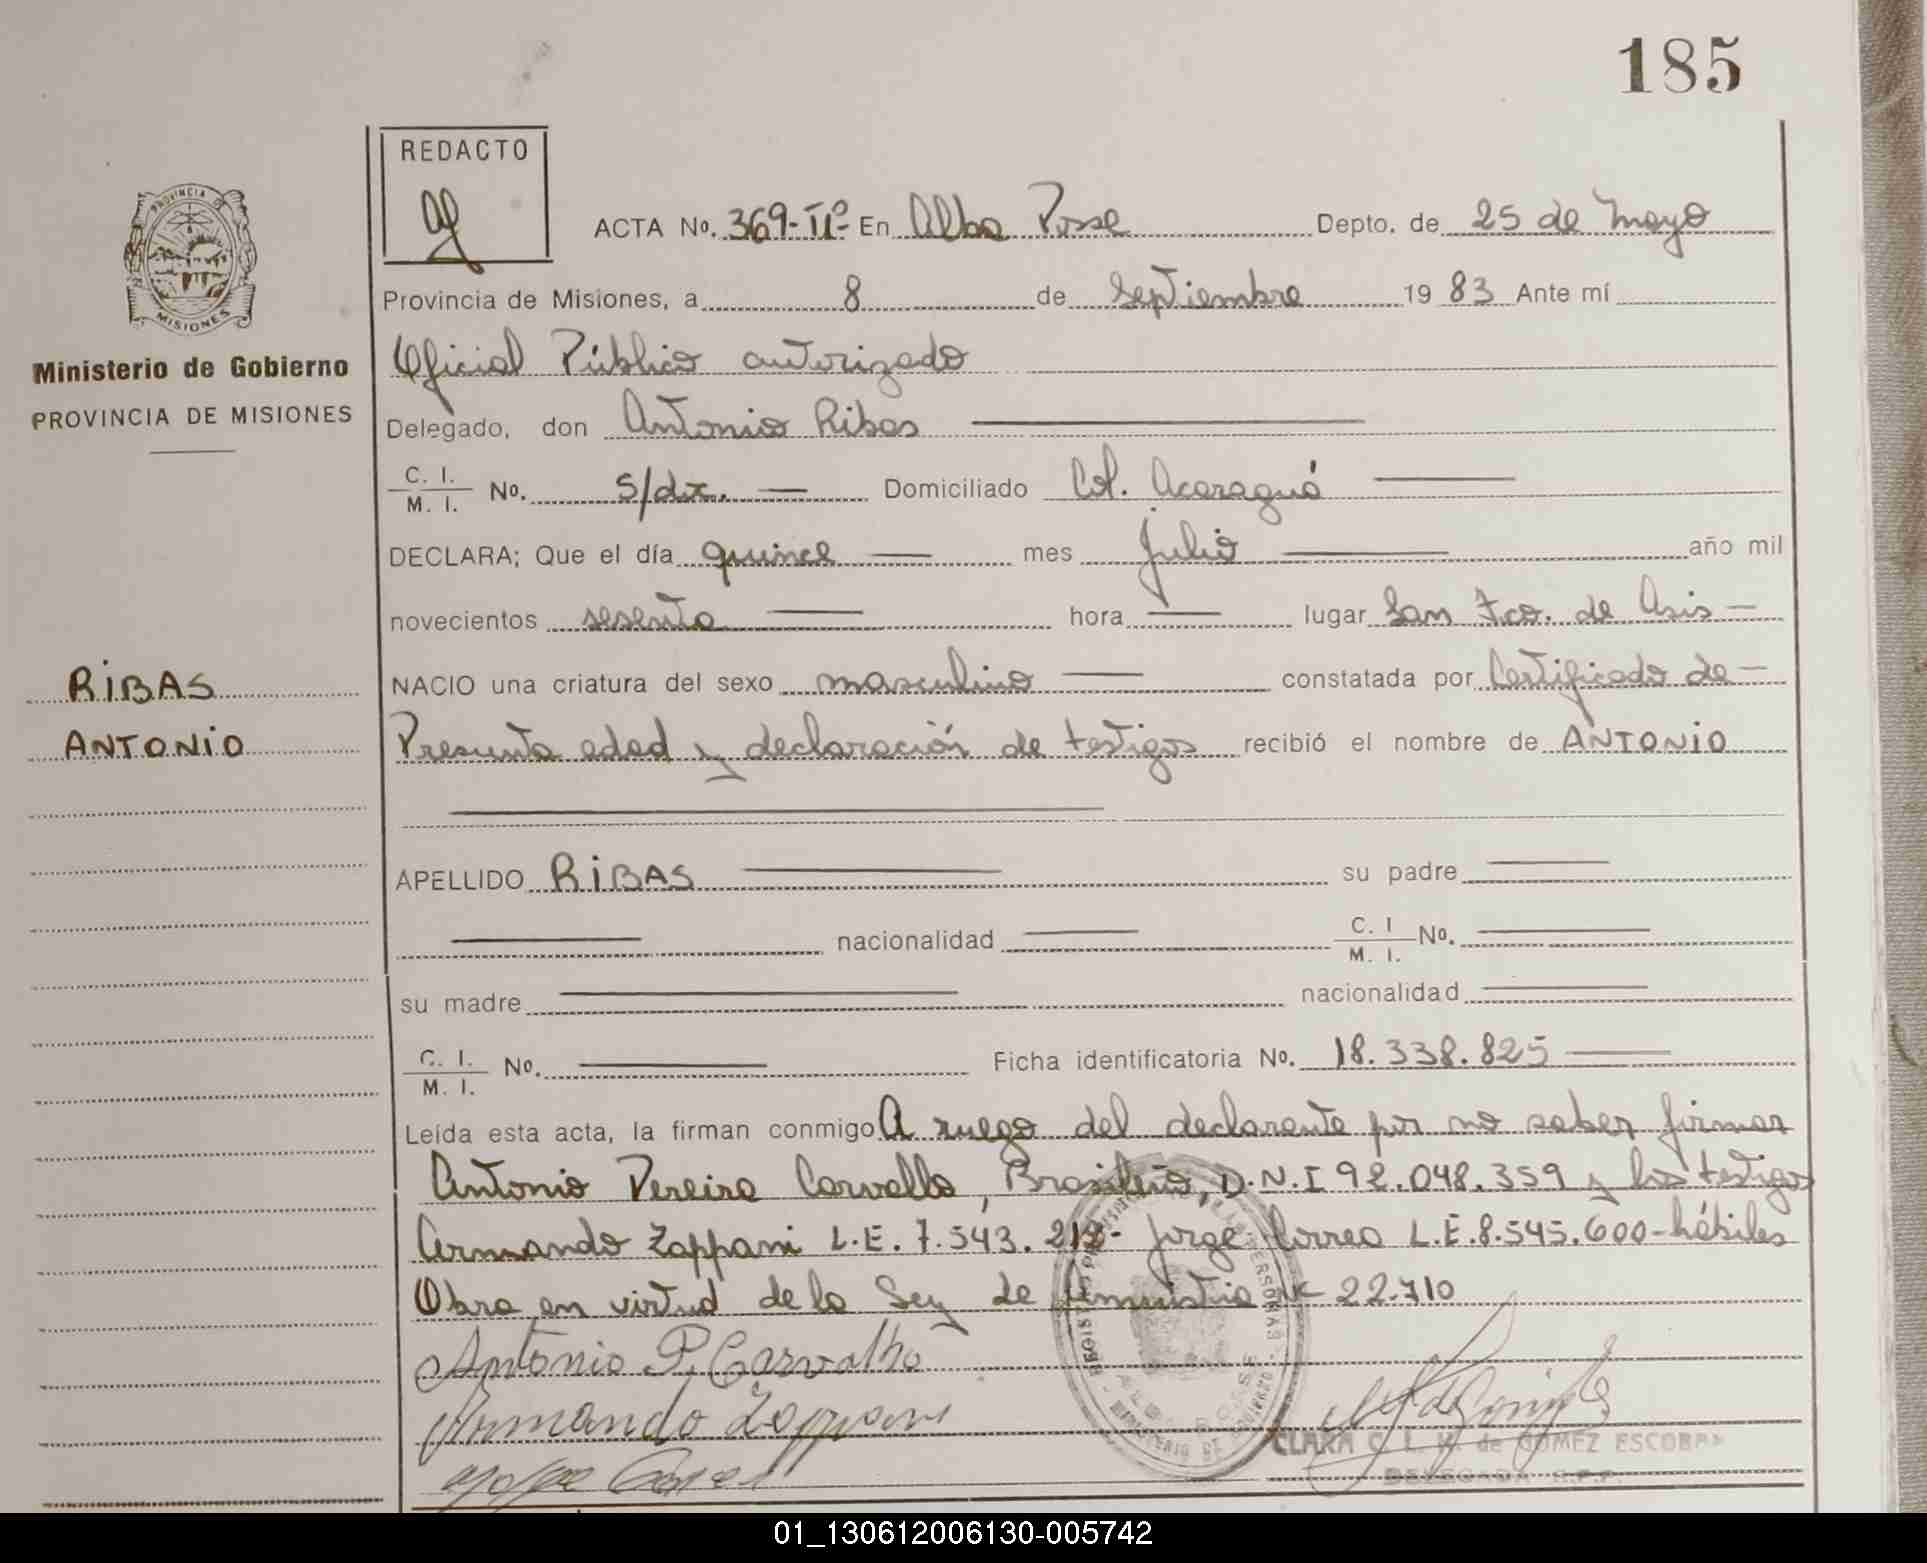 185
REDACTO
ACTA No. 369-IIº- En Alba Posse Depto. de 25 de Mayo
PROVINCIA DE MISIONES
Provincia de Misiones, a 8 de Septiembre 1983 Ante mí
Ministerio de Gobierno
PROVINCIA DE MISIONES
Oficial Público autorizado
Delegado, don Antonio Ribas
C. I.
M. I. No. s/dx. Domiciliado Col. Acaraguá
DECLARA; Que el día quince mes julio año mil
novecientos sesenta hora lugar San Fco. de Asis
RIBAS
ANTONIO
NACIO una criatura del sexo masculino constatada por Certificado de
Presunta edad y declaración de testigos recibió el nombre de ANTONIO
APELLIDO RIBAS su padre
nacionalidad C. I
M. I. No.
su madre nacionalidad
C. I.
M. I. No. Ficha identificatoria No. 18.338.825
Leída esta acta, la firman conmigo A ruego del declarante por no saber firmar
Antonio Pereira Carvallo, Brasileño, D.N.I 92.048.359 y los testigos
Armando Zappani L.E. 7.543. Jorge Correa L.E. 8.545.600-hábiles
Obra en virtud de la Ley de Amnistia 22.710
Antonio P. Carvalho
Armando Zappani
CLARA C. L. de GOMEZ ESCOBAR
DELEGADA R.P.P.
01_130612006130-005742